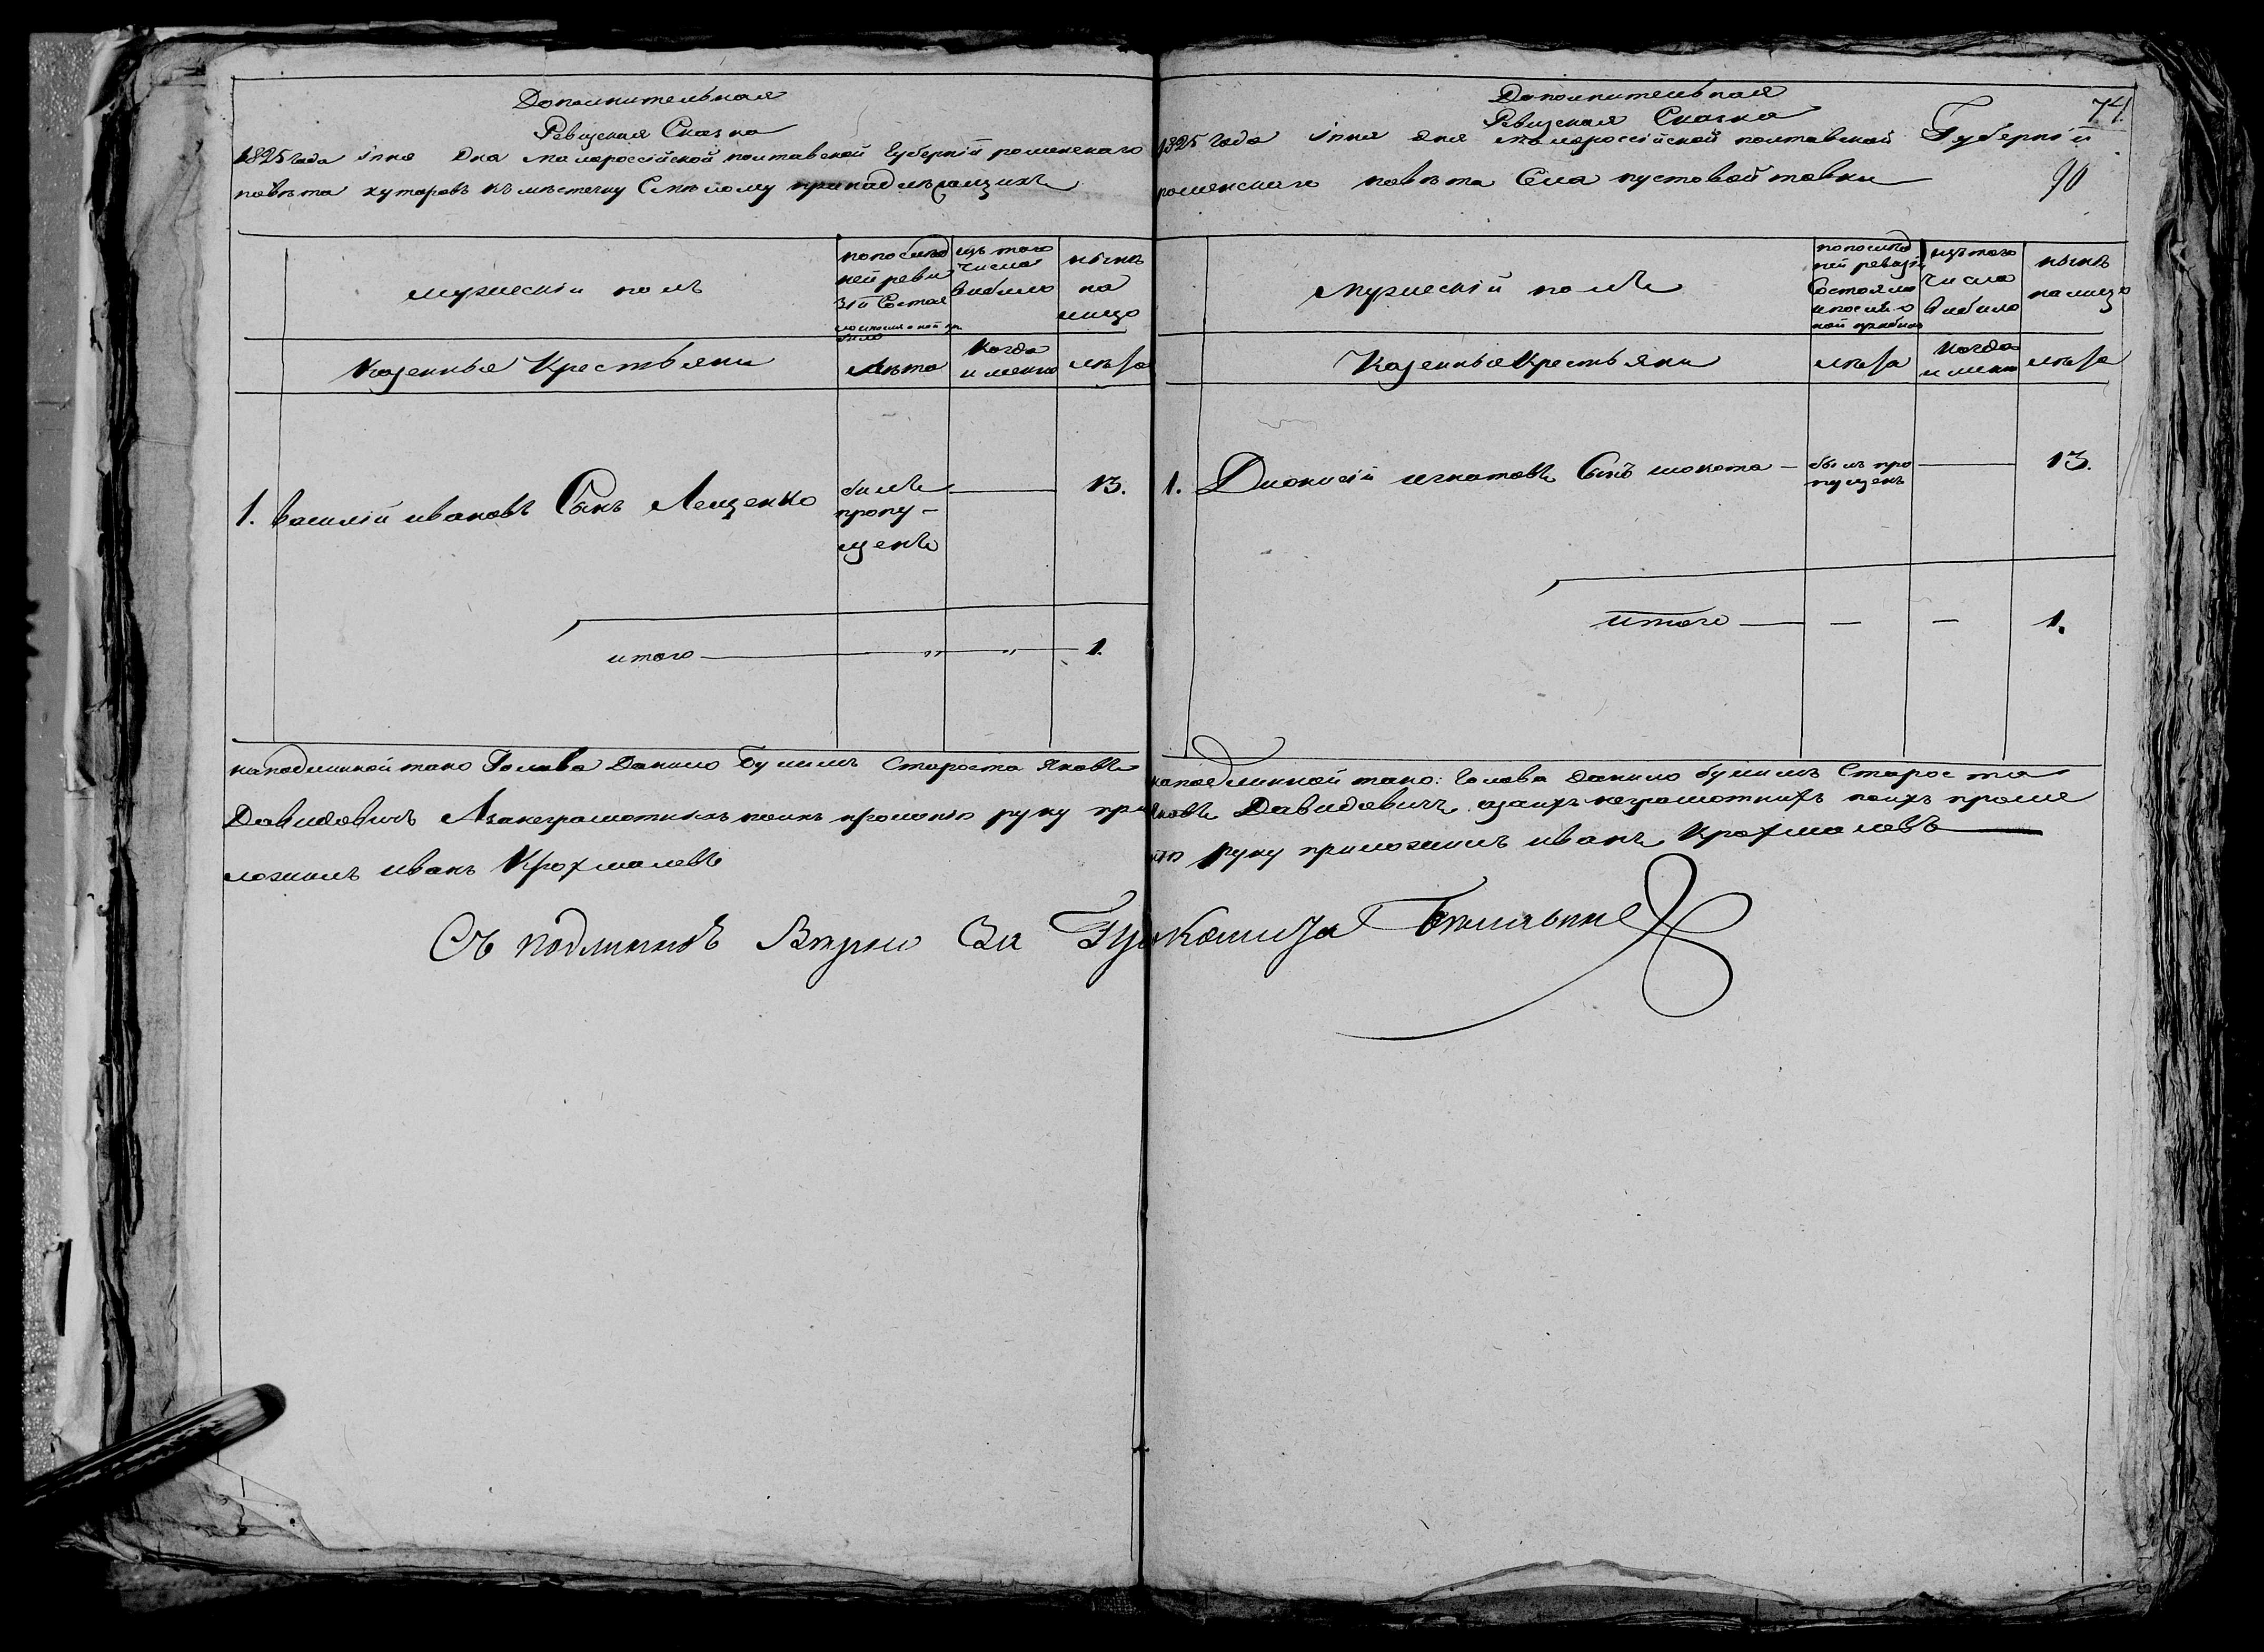 Дополнительная
Ревизская Сказка
1825 года Іюня Дня малороссійской полтавской Губерніи роменскаго
повѣта хуторовъ къ мѣстечку Смѣлому принадлѣжащихъ
мужескій полъ
по послѣд
ней реви
зіи Состоя
ло и после оной при
было
изъ того
числа
выбыло
нынѣ
на
лицо
Казенные Крестьяне
лѣта
когда
именно
лѣта
1. василій ивановъ Сынъ Лещенко
билъ
пропу-
щенъ
13.
итого 1.
на подлинной тако Голова Данило Булимъ Староста Яковъ
Давидовичъ А за неграмотныхъ по ихъ прошенію руку при
ложилъ иванъ Крохмалевъ
Дополнительная
Ревизская Сказка
74
1825 года Іюня дня малороссійской полтавской Губерніи
роменскаго повѣта Села пустовойтовки
90
мужескій полъ
по послѣд
ней ревизіи
Состояло
и после о
ной прибыло
изъ того
числа
выбыло
нынѣ
на лицо
Казенные Крестьяне
лѣта
когда
именно
лѣта
1. Дионисій игнатовъ Сынъ шокота -
былъ про
пущенъ
13.
итого — — — 1.
на подлинной тако: Голова Данило булимъ Староста
Яковъ Давидовичъ а за ихъ неграмотнихъ по ихъ проше
нію руку приложилъ иванъ Крохмалевъ
Съ подлиннымъ Вѣрно За